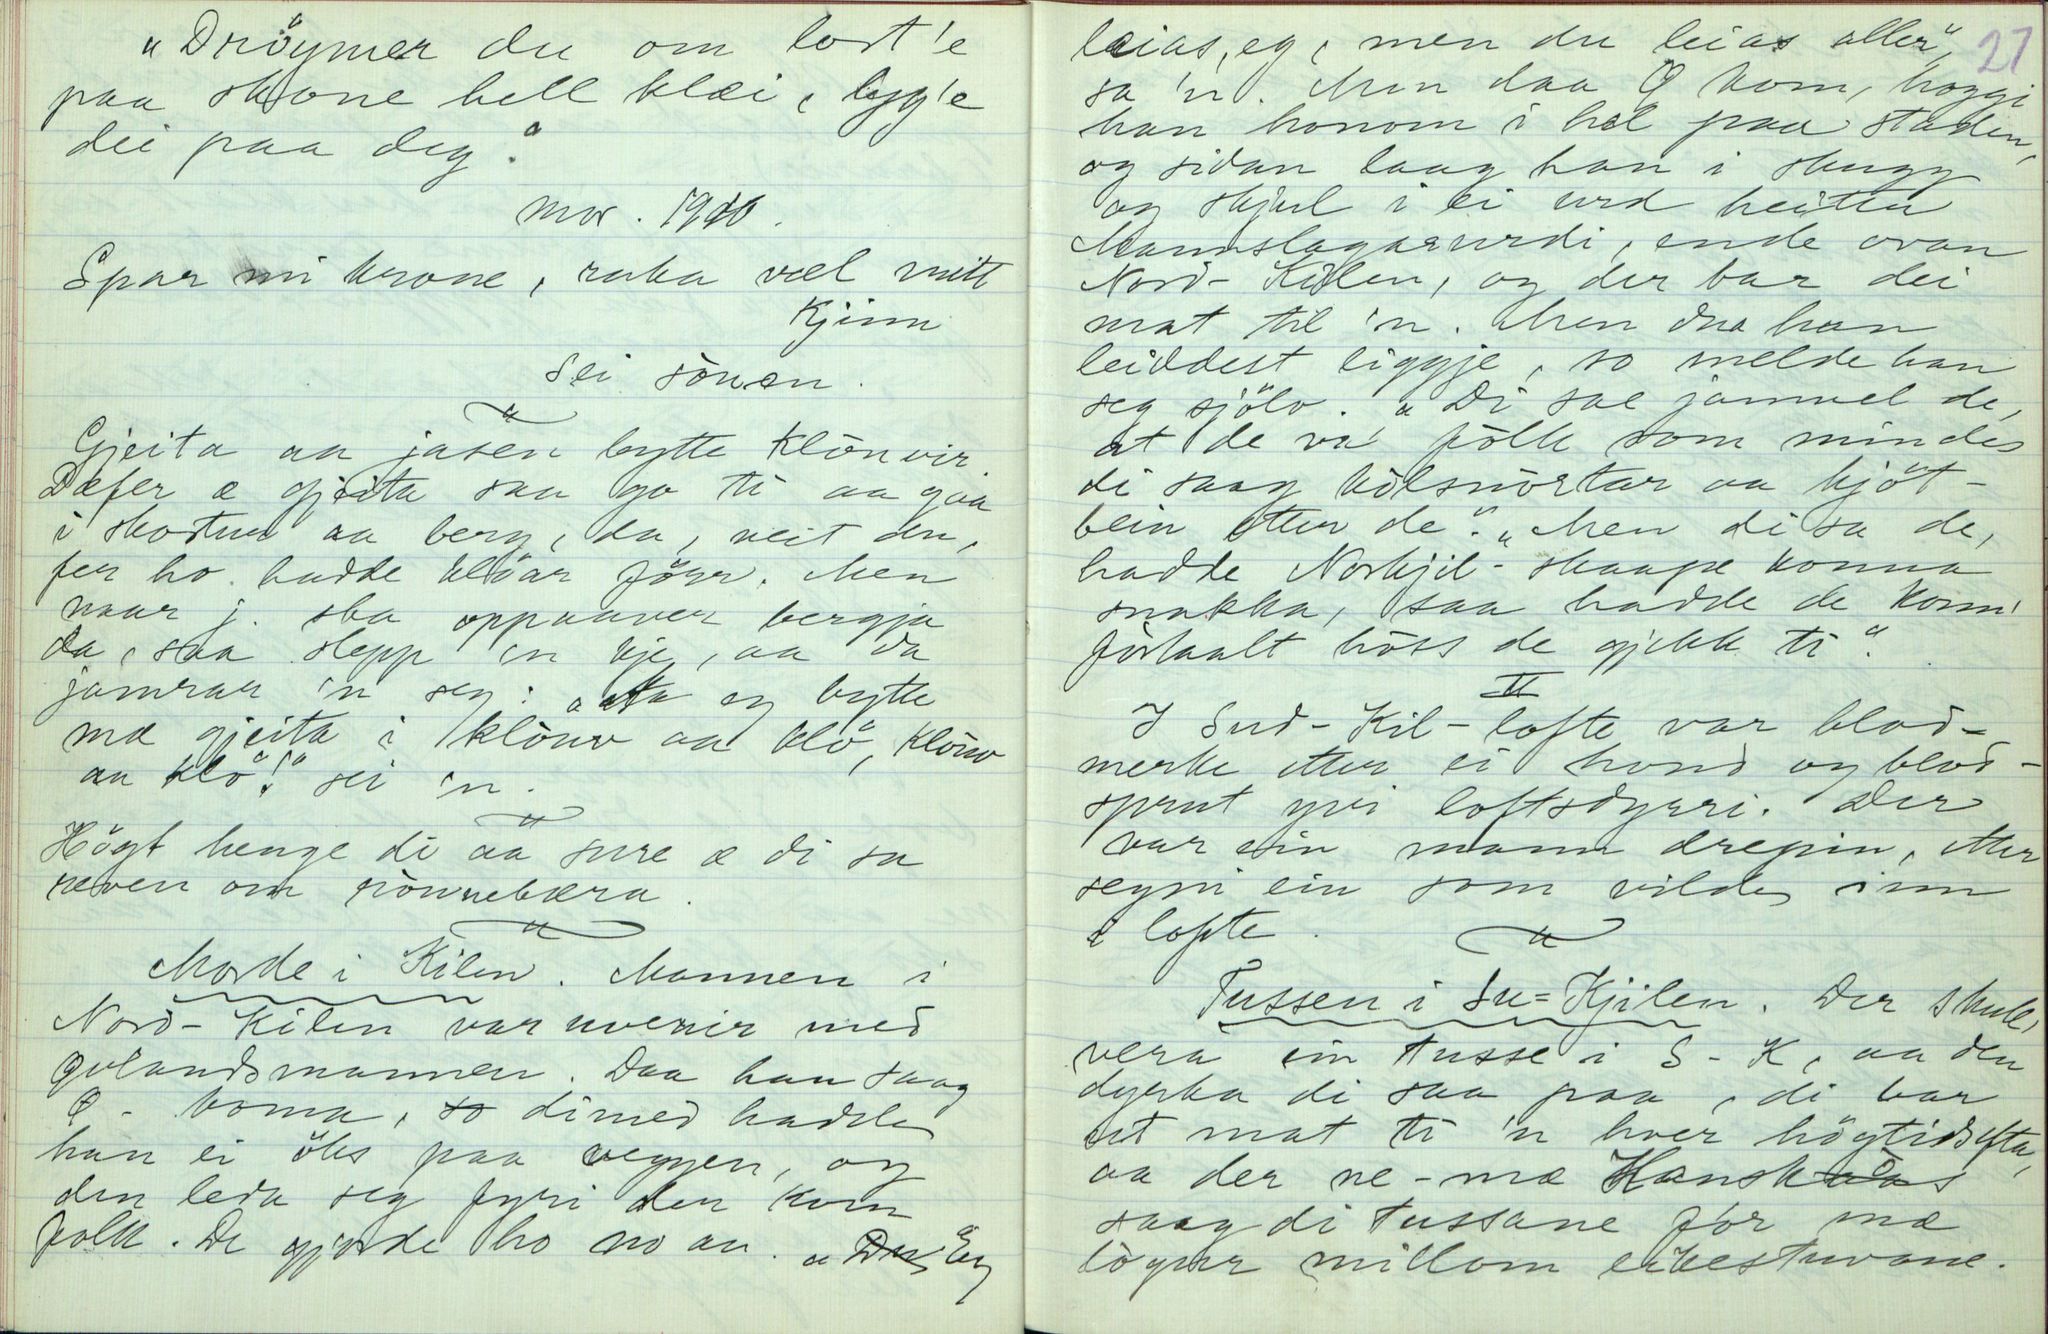 "Dröymer du om lort'e
paa skone hell klæi, lyg'e
dei paa deg."
mor. 1910.
Spar mi krone, raka væl mitt
Kjinn
sei sòuen.
"
Gjeita aa jasen bytte klouvir.
Dæfer æ gjeita saa go ti aa gaa
i skortur aa berg, da, veit du,
fer ho hadde klöar förr. Men
naar j. ska oppaaver bergja
da, saa slepp 'n kje, aa da
jamrar 'n seg: "At eg bytte
mæ gjeita i klòuv aa klö, klòuv
aa klö!" sei 'n.
"
Högt henge di aa sure æ di sa
reven om ròunebæra.
"
Morde i Kilen. Mannen i
Nord-Kilen var uvenir med
Qvlandsmannen. Daa han saag
Q- koma, so dimed hadde
han ei öks paa veggen, og
den leda seg fyri der kom
folk. De gjorde ho no au. "Du Eg
leias, eg, men du leias aller",
sa 'n. Men daa Q kom, hoggi
han honom i hel paa staden,
og sidan laag han i skugg
og skjul i ei urd heiter
Mannslagarurdi, ende ovan
Nord-Kilen, og der bar dei
mat til 'n. Men daa han
leiddest liggje, so melde han
seg sjölv. "Di sae jamvel de,
at de va' fòlk som mindes
di saag kòlsnòrtar aa kjöt-
bein etter de". "Men di sa de,
hadde Norkjil-skaape konna
snakka, saa hadde de komi
förtaalt höss de gjekk ti".
II
I Sud-Kil-lofte var blod-
merke etter ei hond og blod-
sprut yvi loftsdyrri. Der
var ein mann drepin, etter
segni ein som vilde inn
i lofte.
"
Tussen i Su=Kjilen. Der skull,
vera ein tusse i S-K, aa den
dyrka di saa paa, di bar
ut mat ti 'n hver högtidsefta,
aa der ne-mæ Hanskaas
saag di tussane fòr mæ
lògur millom eikestuvane.
27